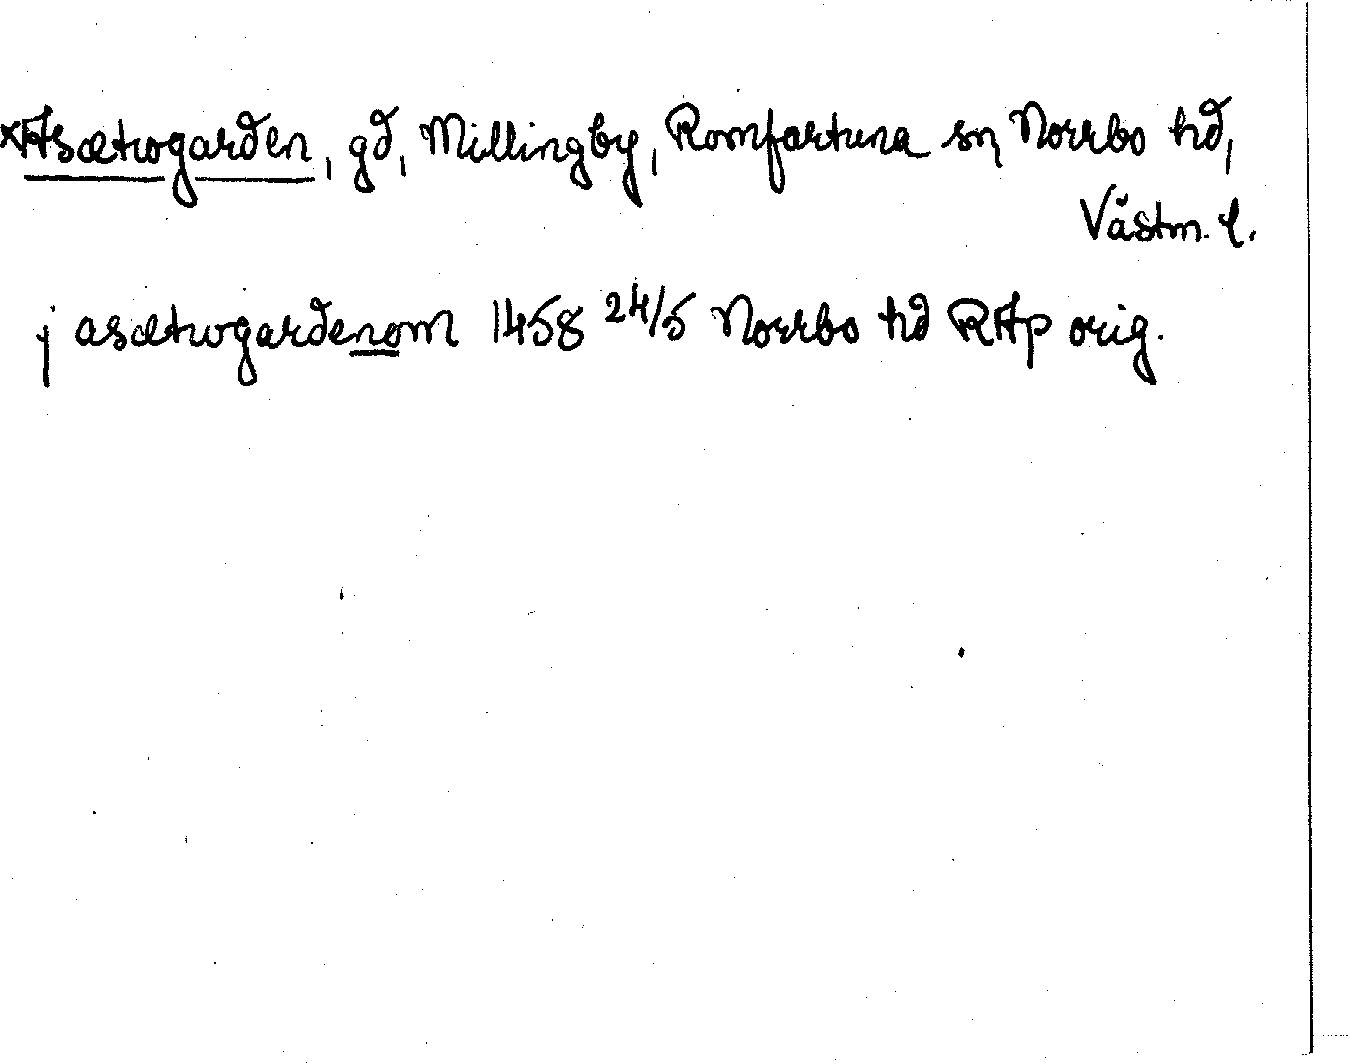 ×Asætrogarden, gd, Millingby, Romfartuna sn Norrbo hd,
Västm. l.
j asætrogardenom 1458 24/5 Norrbo hd RAp orig.